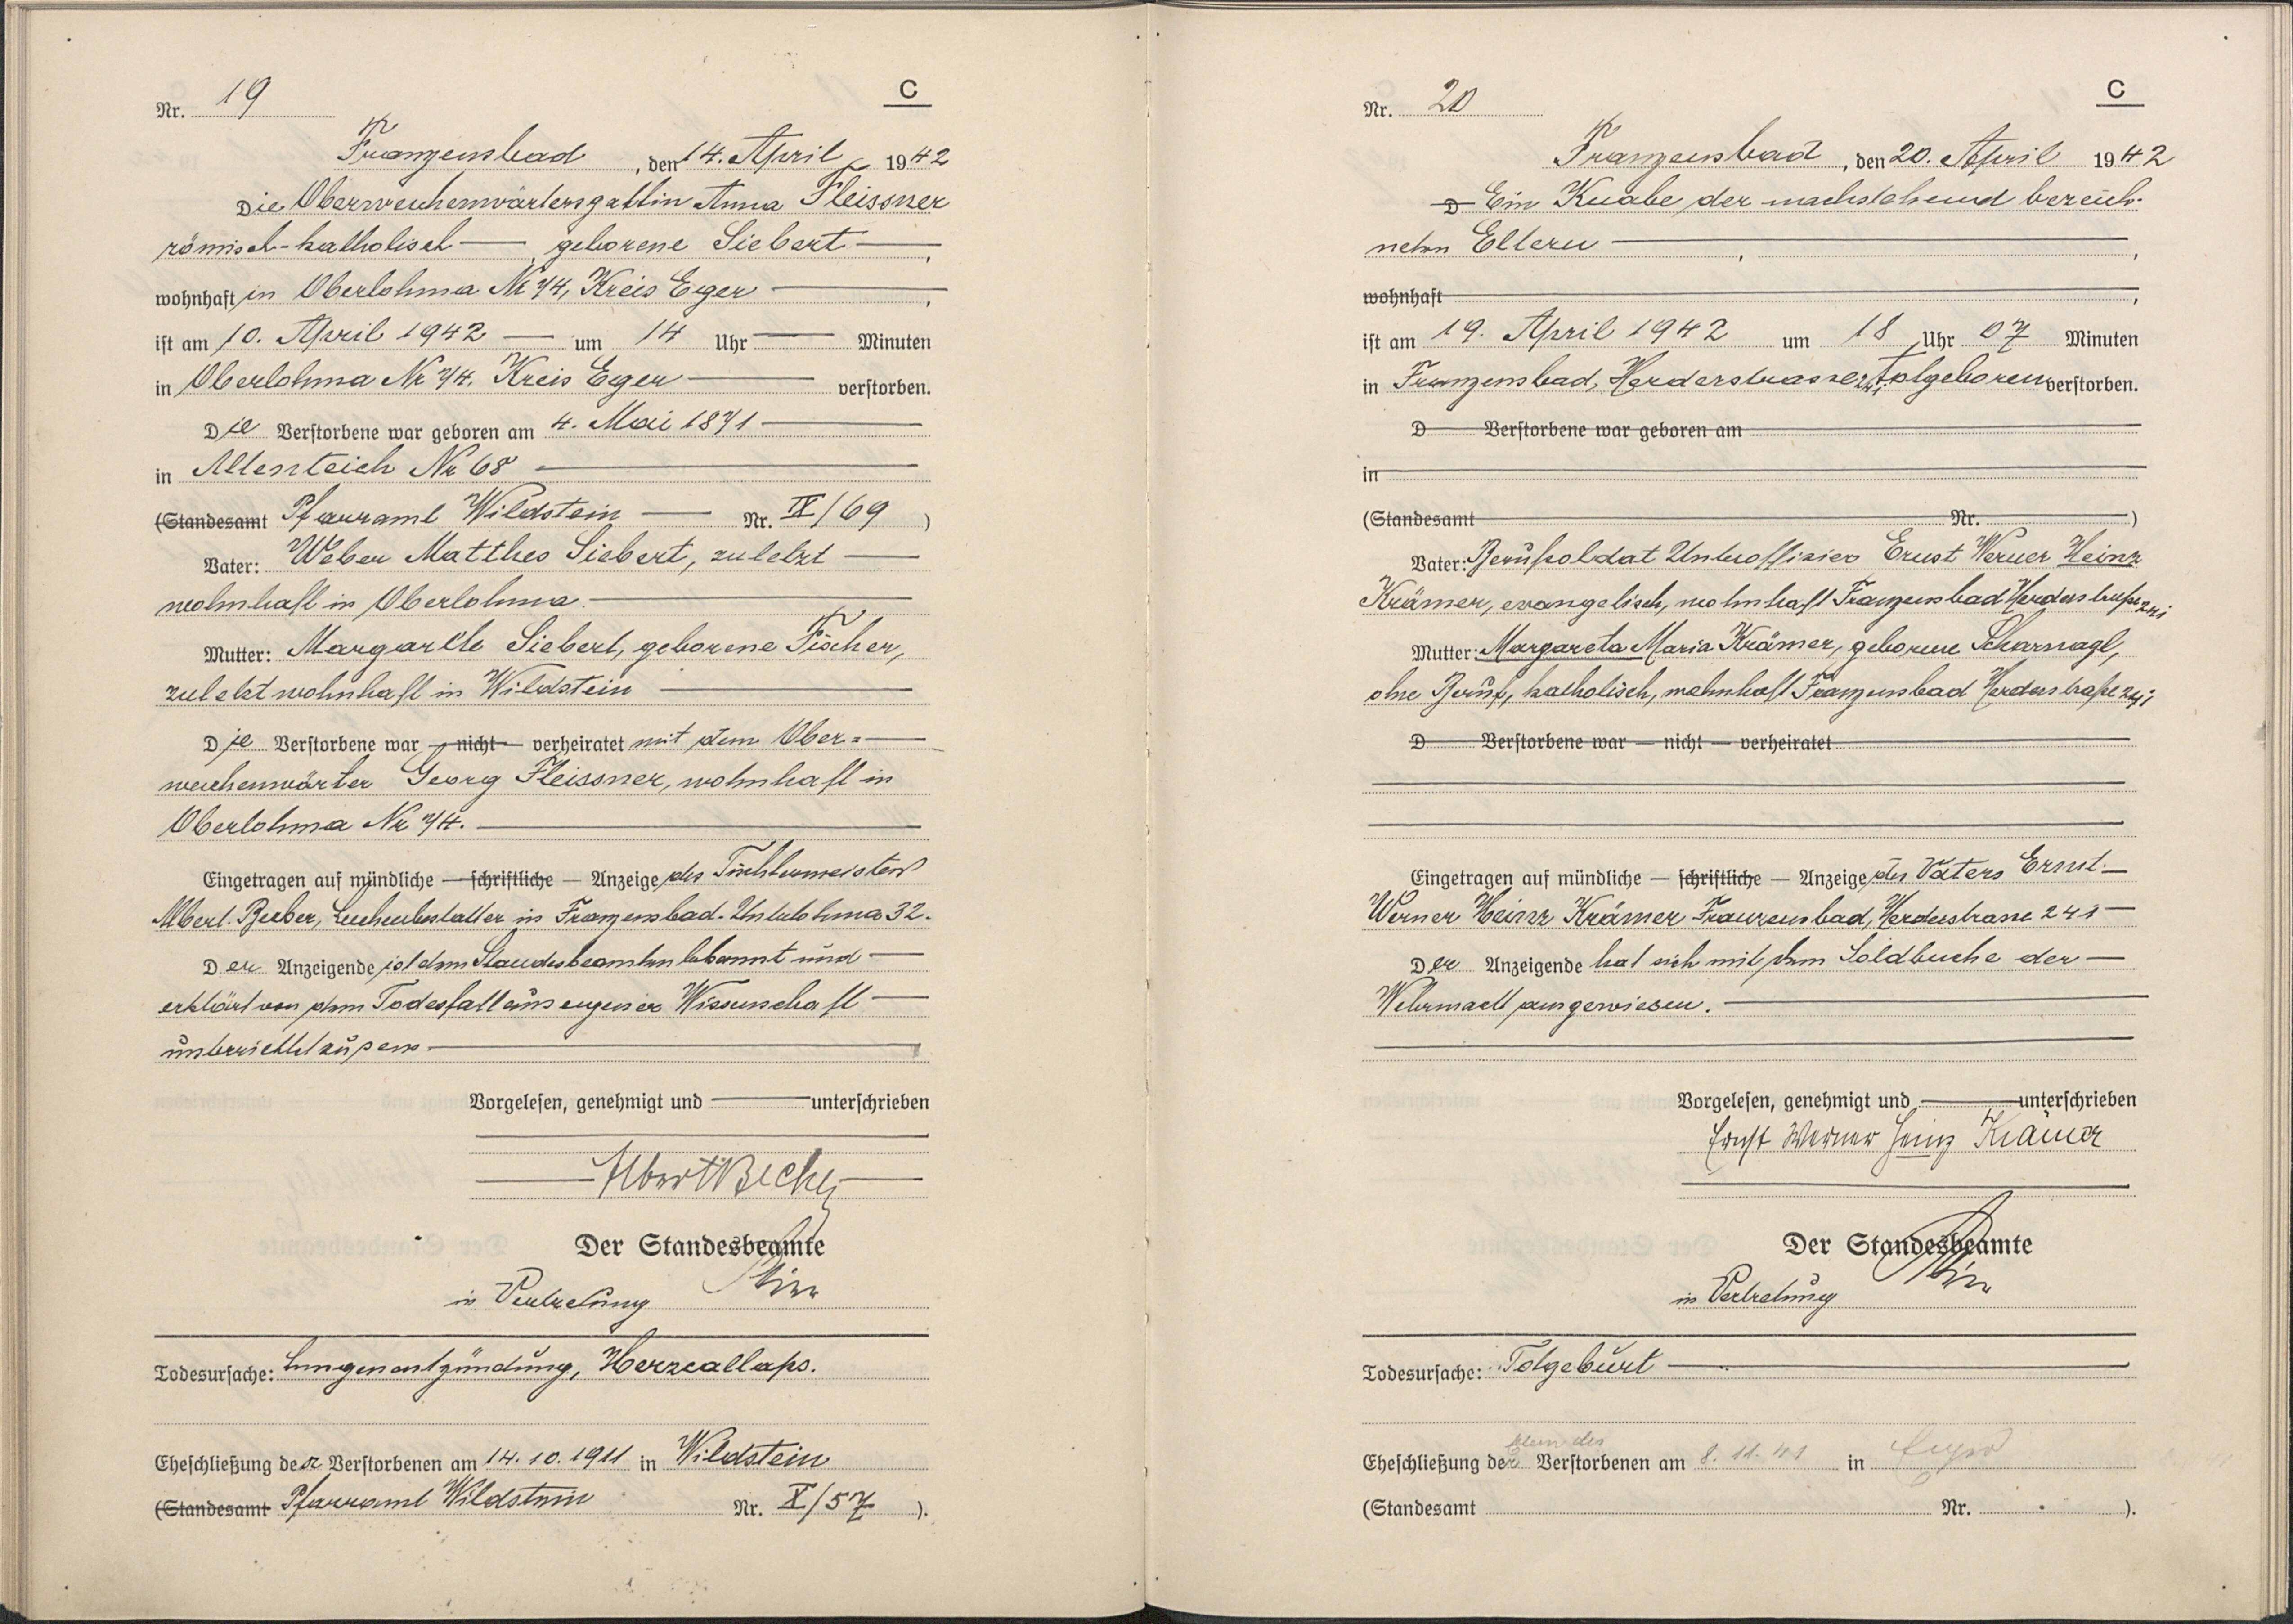 Nr. 19
C
Franzensbad, den 14. April 1942
Die Oberweichenwärtersgattin Anna Fleissner
römisch-katholisch — geborene Siebert —,
wohnhaft in Oberlohma Nr 74, Kreis Eger —,
ist am 10. April 1942 — um 14 Uhr — Minuten
in Oberlohma Nr 74. Kreis Eger — verstorben.
Die Verstorbene war geboren am 4. Mai 1871 —
in Altenteich Nr 68 —
(Standesamt Pfarramt Wildstein — Nr. IX/69)
Vater: Weber Matthes Siebert, zuletzt —
wohnhaft in Oberlohma. —
Mutter: Margarethe Siebert, geborene Fischer,
zuletzt wohnhaft in Wildstein —
Die Verstorbene war — nicht — verheiratet mit dem Ober= —
weichenwärter Georg Fleissner, wohnhaft in
Oberlohma Nr 74. —
Eingetragen auf mündliche — schriftliche — Anzeige des Tischlermeisters
Albert, Leichenbestatter in Franzensbad-Unterlohma 32.
Der Anzeigende ist dem Standesbeamten bekannt und —
erklärt von dem Todesfall aus eigener Wissenschaft —
unterrichtet zu sein —
Vorgelesen, genehmigt und — unterschrieben
Albert
Der Standesbeamte
in Vertretung
Todesursache: Lungenentzündung, Herzcollaps.
Eheschließung der Verstorbenen am 14.10.1911 in Wildstein
(Standesamt Pfarramt Wildstein Nr. X/57).
Nr. 20
C
Franzensbad, den 20. April 1942
D Ein Knabe der nachstehend bezeich-
neten Eltern —,
wohnhaft —,
ist am 19. April 1942 um 18 Uhr 07 Minuten
in Franzensbad, Herderstrasse 241 totgeboren verstorben.
D — Verstorbene war geboren am —
in —
(Standesamt — Nr. —)
Vater: Berufsoldat Unteroffizier Ernst Werner Heinz
Krämer, evangelisch, wohnhaft Franzensbad Herderstraße 241
Mutter: Margareta Maria Krämer, geborene Scharnagl,
ohne Beruf, katholisch, wohnhaft Franzensbad Herderstraße 241
D — Verstorbene war — nicht — verheiratet —
Eingetragen auf mündliche — schriftliche — Anzeige des Vaters Ernst —
Werner Heinz Krämer Franzensbad, Herderstrasse 241 —
Der Anzeigende hat sich mit dem Soldbuche der —
Wehrmacht ausgewiesen. —
Vorgelesen, genehmigt und — unterschrieben
Ernst Werner Heinz Krämer
Der Standesbeamte
in Vertretung
Todesursache: Totgeburt —
Eltern des
Eheschließung der Verstorbenen am 8.11.41 in
(Standesamt Nr. ).